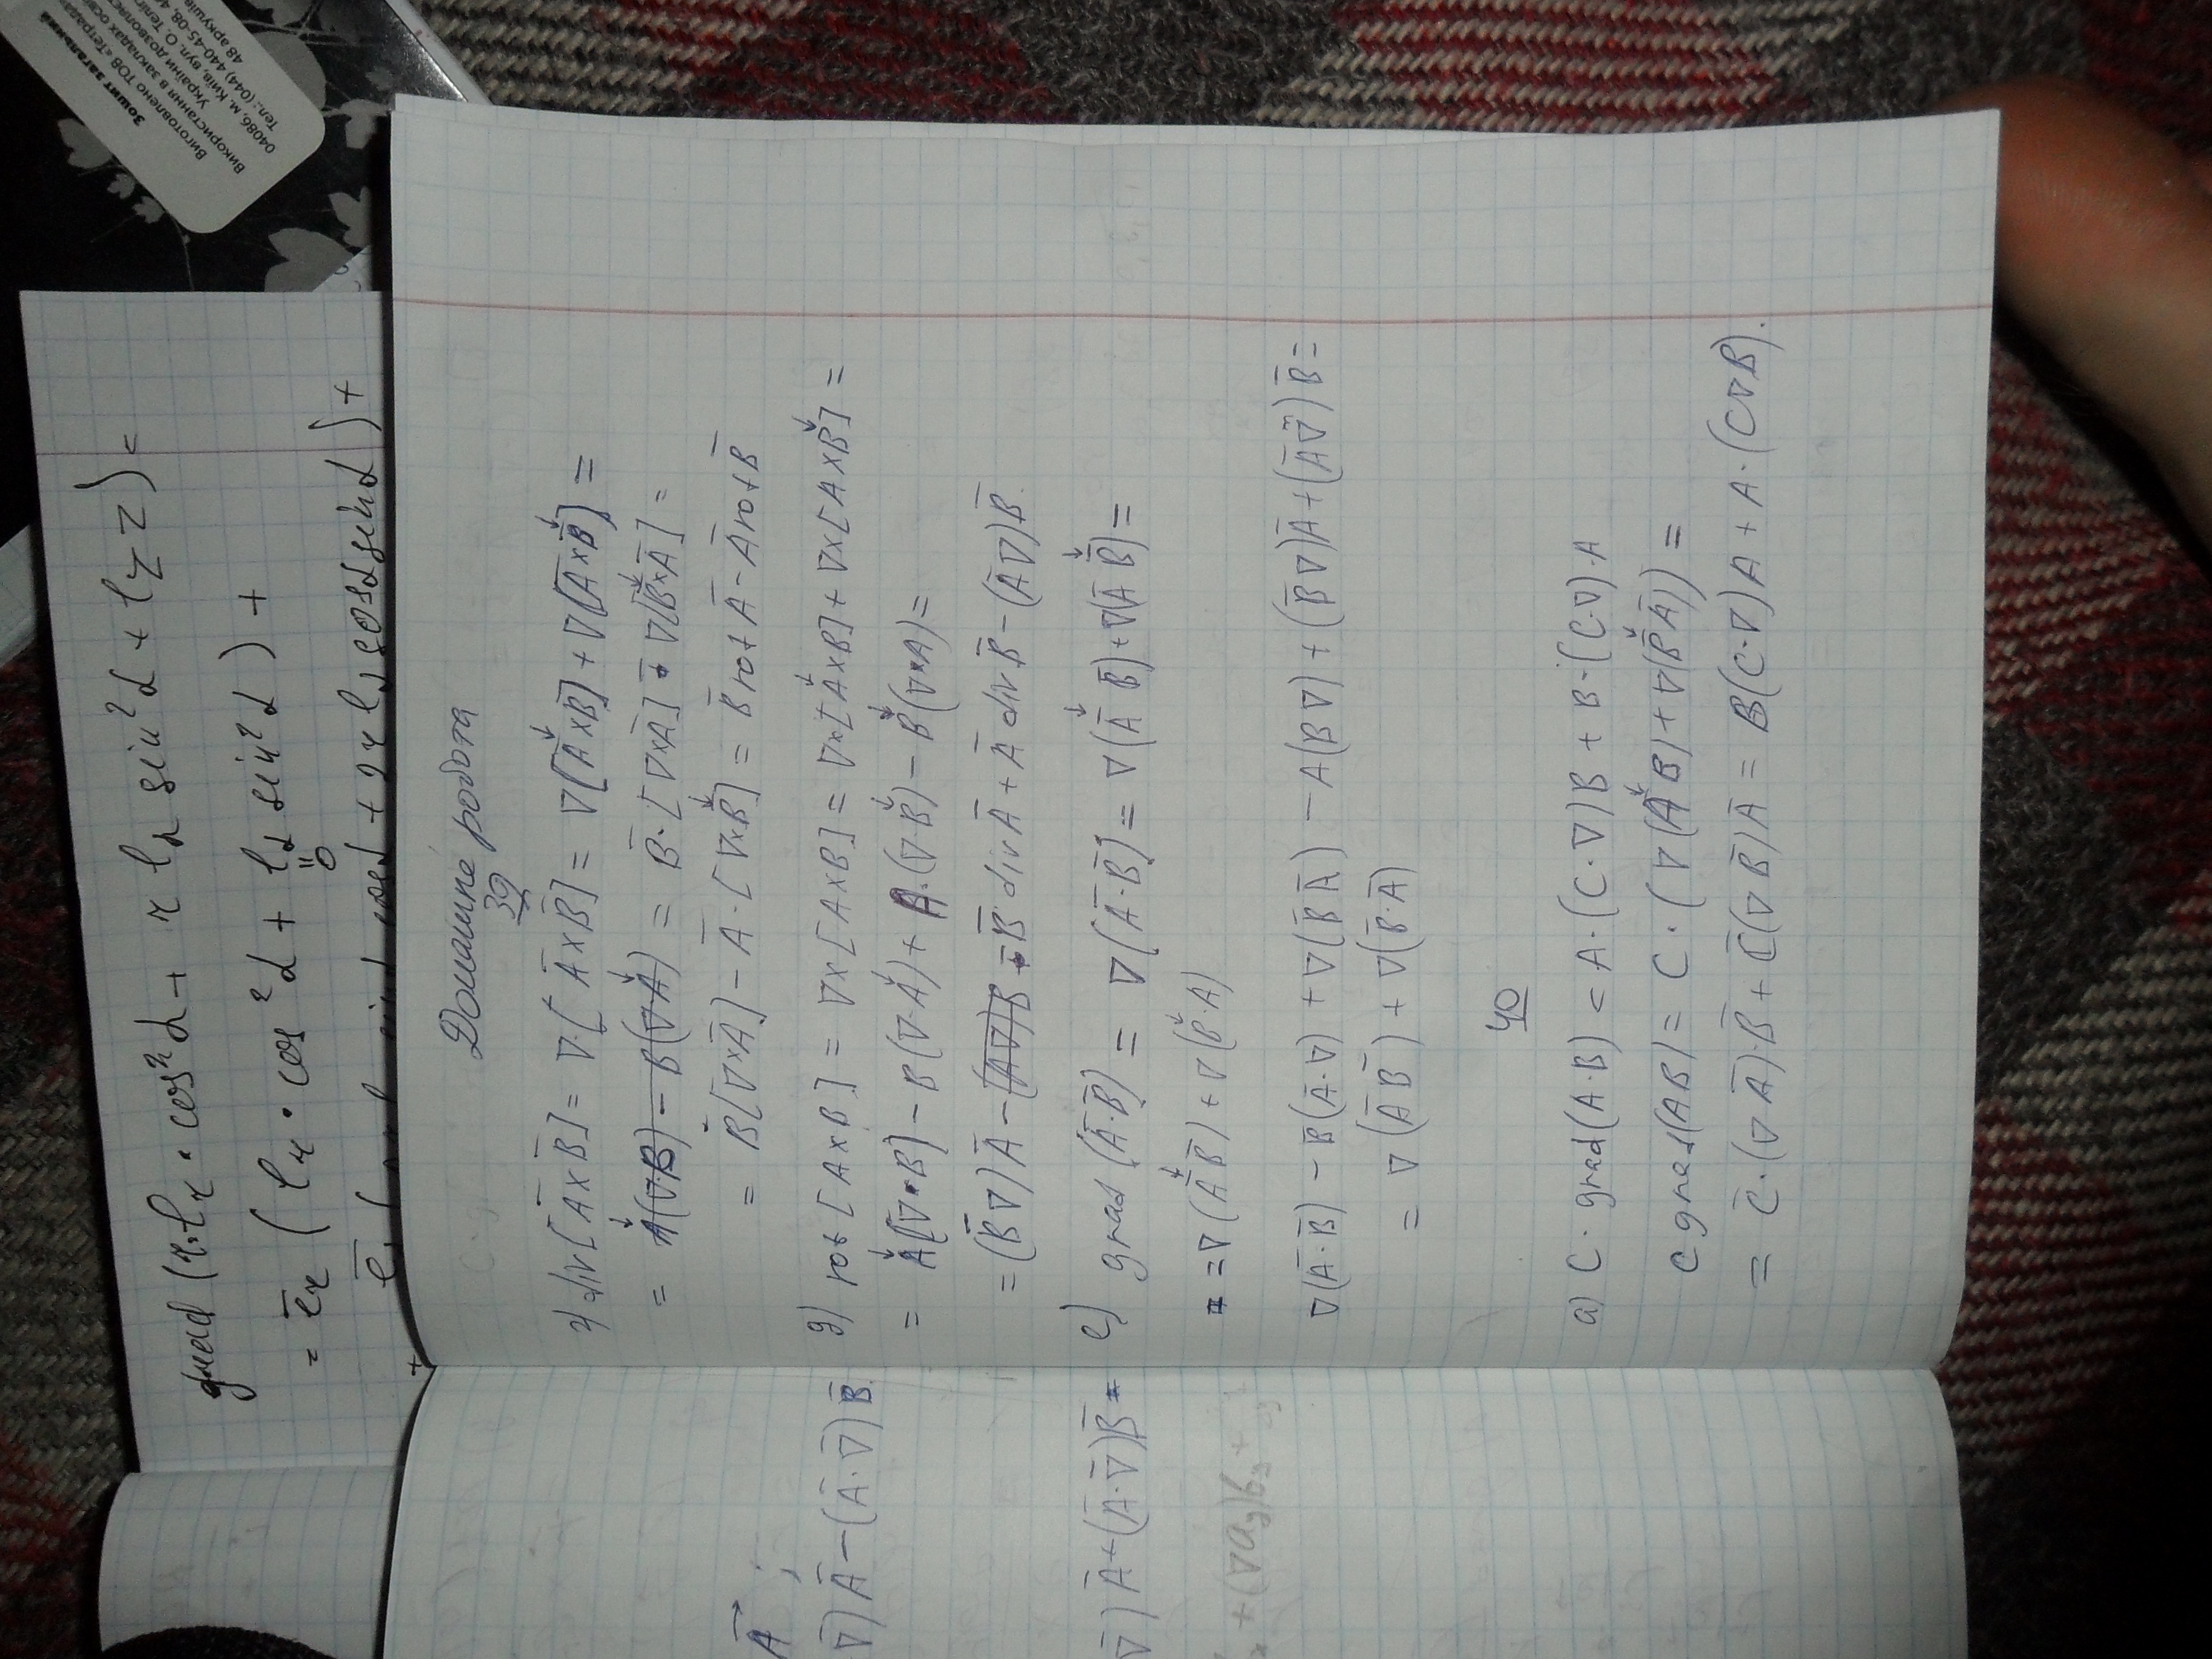 Зошит загальний
Виготовлено ТОВ «Тетрада
Використання в закладах осві
України дозволе
04086, м. Київ, вул. О. Теліг
Тел.: (044) 440-45-08, 4
48 аркушів
grad (r·l_r · cos²α + r l_α sin²α + l_z z) =
= e̅_r ( l_r · cos²α + l_α sin²α ) +
"0
cosα + 2r l_α cosα sinα) +
Домашнє робота
39
г) div[A̅×B̅] = ∇·[A̅×B̅] = ∇[A̅↓×B̅] + ∇[A̅×B̅↓] =
= A̅↓(∇·B) − B(∇·A↓) = B̅·[∇×A̅] + ∇[B̅↓×A̅] =
= B̅[∇×A̅] − A̅·[∇×B̅↓] = B̅ rot A̅ − A̅ rot B̅
д) rot [A×B] = ∇×[A×B] = ∇×[A↓×B] + ∇×[A×B↓] =
= A↓[∇·B] − B(∇·A↓) + A·(∇·B↓) − B↓(∇×A) =
= (B̅∇)A̅ − (A∇)B + B̅·div A̅ + A̅ div B̅ − (A̅∇)B̅
е) grad (A̅·B̅) = ∇(A̅·B̅) = ∇(A̅↓ B̅) + ∇(A̅ B̅↓) =
= ∇(A̅↓B̅) + ∇(B̅↓·A)
∇(A̅·B̅) − B̅(A̅·∇) + ∇(B̅ A̅) − A(B∇) + (B̅∇)A̅ + (A̅∇̅)B̅ =
= ∇(A̅ B̅) + ∇(B̅·A̅)
40
а) C · grad(A·B) = A·(C·∇)B + B·(C·∇)·A
C grad(AB) = C · (∇(A↓B) + ∇(B̅↓A̅)) =
= C̅·(∇A̅)·B̅ + C̅(∇B̅)A̅ = B(C·∇)A + A·(C∇B).
A⃗ ;
∇̅)A̅ − (A̅·∇̅)B̅
∇̅)A̅ + (A̅·∇̅)B̅ =
+ (∇a_y)b_y +